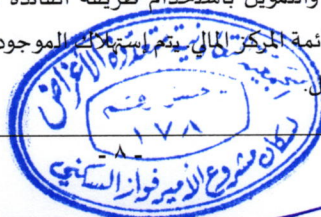 والتمويل باستخدام طريقة الفائدة
ئمة المركز المالي. يتم استهلاك الموجود
ل.
متعددة الأغراض
١٧٨
لسكان مشروع الأمير فواز السكني
- ٨ -